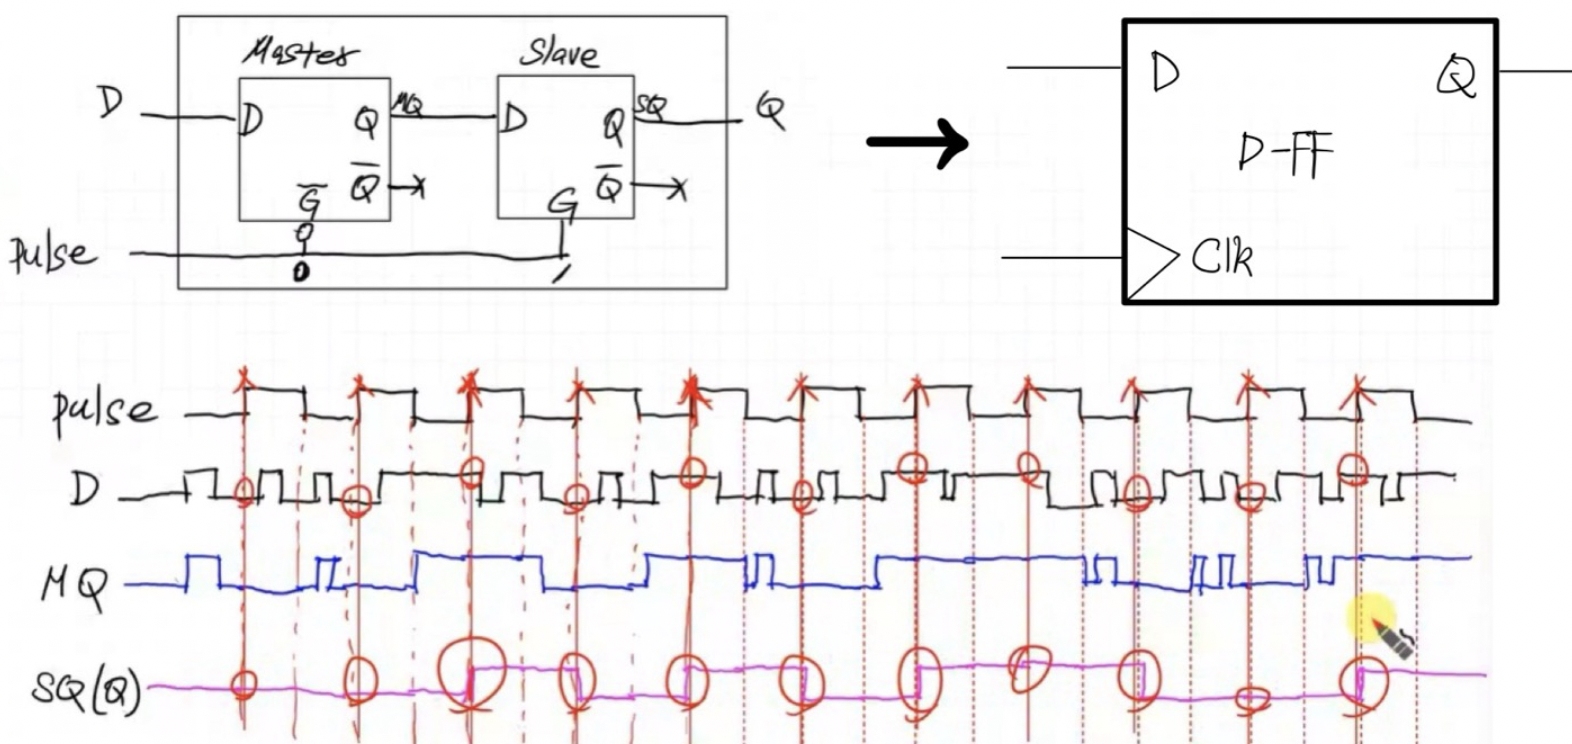 Master
Slave
D
D
Q
MQ
D
Q
SQ
Q
G̅
Q̅
G
Q̅
Pulse
0
1
D
Q
D-FF
Clk
Pulse
D
MQ
SQ(Q)